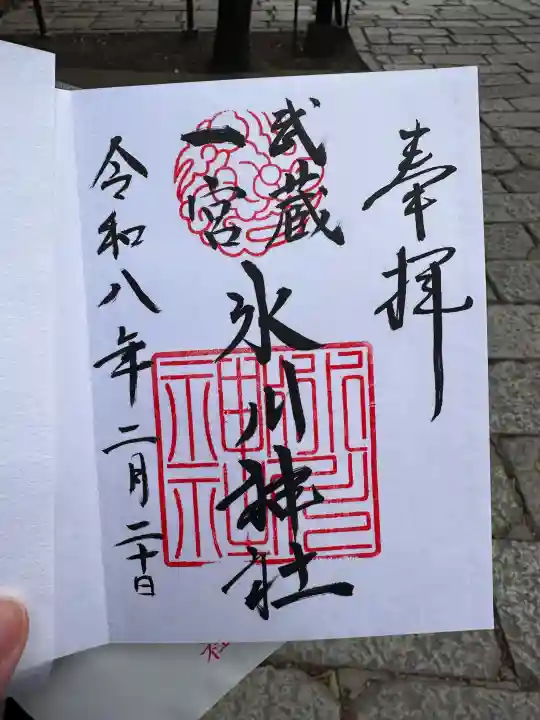 奉拝
武蔵
一宮
氷川神社
令和八年二月二十日
氷川
神社